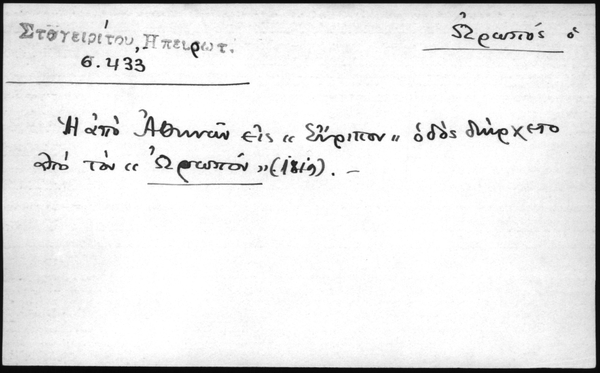 Σταγειρίτου, Ηπειρωτ.
σ. 433
Ὠρωπός ὁ
Ἡ ἀπὸ Ἀθηνῶν εἰς « Εὔριπον » ὁδὸς διήρχετο
ἀπό τὸν « Ὠρωπόν » (1819). —